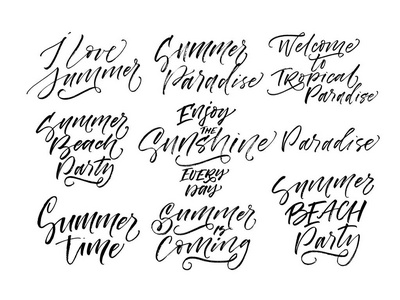 I Love
Summer
Summer
Paradise
Welcome
to
Tropical
Paradise
Summer
Beach
Party
Enjoy
THE
Sunshine
EVERY
DAY
Paradise
Summer
time
Summer
is
Coming
Summer
BEACH
Party